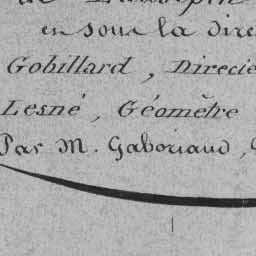 en sous la dire
Gobillard, Directe
Lesné, Géomêtre
Par M. Gaboriaud,